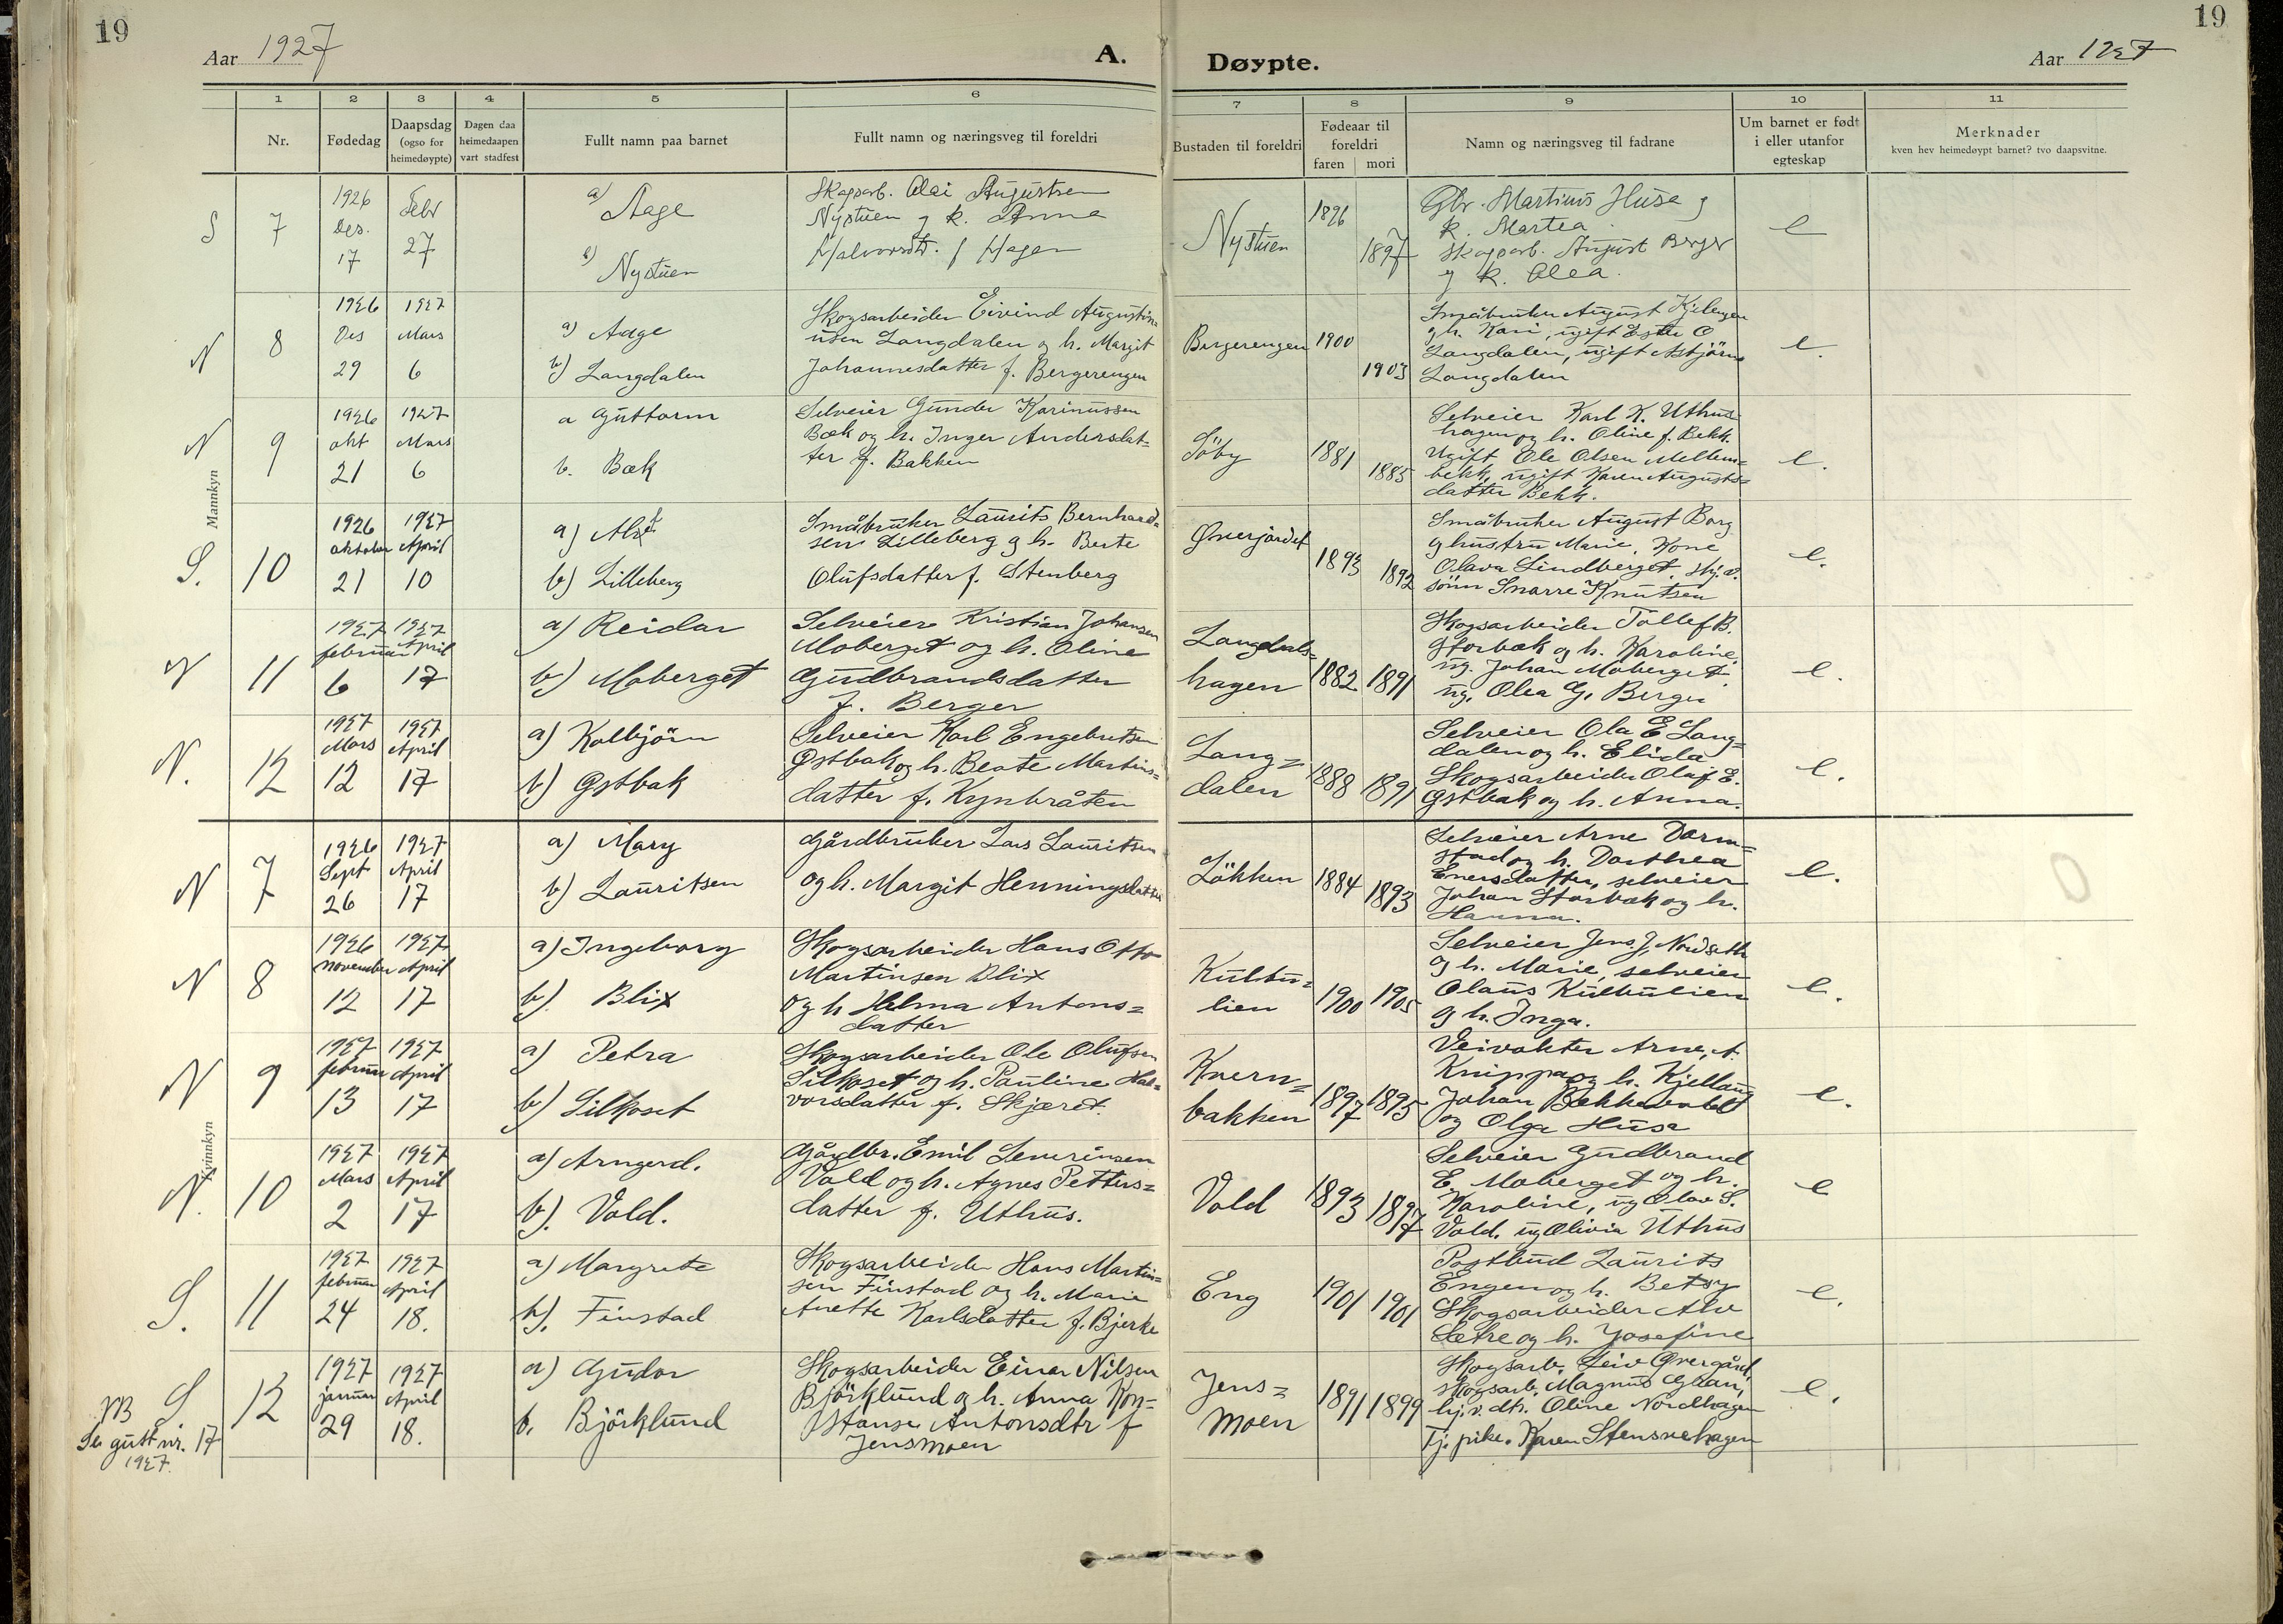 19
19
Aar 1927
A.
Døypte.
Aar 1927
1 2 3 4 5 6 7 8 9 10 11
Nr.
Fødedag
Daapsdag (ogso for heimedøypte)
Dagen daa heimedaapen vart stadfest
Fullt namn paa barnet
Fullt namn og næringsveg til foreldri
Bustaden til foreldri
Fødeaar til foreldri
faren mori
Namn og næringsveg til fadrane
Um barnet er født i eller utanfor egteskap
Merknader
kven hev heimedøypt barnet? tvo daapsvitne.
Mannkyn
S 7
1926 Des. 17
Febr 27
a) Aage
b) Nystuen
Skogsarb. Olai Augustsen
Nystuen g k. Anna
Halvorsdt. f Hagen
Nystuen
1896
1897
Gbr. Martinus Husa g
k. Martea
Skogsarb. August Berger
g k. Olea.
e
N 8
1926 Des 29
1927 Mars 6
a) Aage
b) Langdalen
Skogsarbeider Eivind Augustin-
usen Langdalen og h. Margit
Johannesdatter f. Bergerengen
Bergerengen
1900
1903
Småbruker August Kjelengen
g h. Kari, ugift Ester O
Langdalen, ugift Asbjörn
Langdalen
e.
N 9
1926 okt 21
1927 Mars 6
a Guttorm
b. Bæk
Selveier Gunder Karinussen
Bæk og h. Inger Andersdat=
ter f. Bakken
Söby
1881
1885
Selveier Karl K. Uthus
hagen og h. Oline f. Bekk.
Ugift Ole Olsen Mellem=
bekk, ugift Karen Augusts=
datter Bekk.
e.
S. 10
1926 oktober 21
1927 April 10
a) Alf
b) Lilleberg
Småbruker Laurits Bernhard=
sen Lilleberg g h. Berte
Olufsdatter f. Stenberg
Øverjordet
1893
1892
Småbruker August Borg
g hustru Marie, Kone
Olava Lindberget,
sönn Snarre Knutsen
e.
N 11
1927 februar 6
1927 April 17
a) Reidar
b) Moberget
Selveier Kristian Johansen
Moberget og h. Oline
Gudbrandsdatter
f. Berger
Langdals=
hagen
1882 1891
Skogsarbeider Tollef B.
Storbæk og h. Karoline,
ug. Johan Moberget
ug. Olea G. Berger
e.
N. 12
1927 Mars 12
1927 April 17
a) Kolbjörn
b) Østbak
Selveier Karl Engebretsen
Østbak og h. Beate Martins=
datter f. Kynbråten
Lang=
dalen
1888 1891
Selveier Ola E Lang=
dalen og h. Elida
Skogsarbeider Olaf E.
Østbak og h. Anna.
e.
Kvinnkyn
N 7
1926 Sept 26
1927 April 17
a) Mary
b) Lauritsen
Gårdbruker Lars Lauritsen
og h. Margit Henningsdatter
Lökken
1884 1893
Selveier Arne Dorm=
stad og h. Dorthea
Enersdatter, selveier
Johan Storbæk og h.
Hanna.
e.
N 8
1926 november 12
1927 April 17
a) Ingeborg
b) Blix
Skogsarbeider Hans Otto
Martinsen Blix
og h Helma Antons=
datter
Kulbu=
lien
1900 1905
Selveier Jens J. Nordseth
og h. Marie, selveier
Olaus Kulbulien
g h. Inga.
e.
N 9
1927 februar 13
1927 April 17
a) Petra
b) Silkoset
Skogsarbeider Ole Olufsen
Silkoset og h. Pauline Hal=
vorsdatter f. Skjæret.
Kvern=
bakken
1897 1895
Veivokter Arne A.
Knippa og h. Kjellaug
Johan Bekkevold
og Olga Husa
e.
N. 10
1927 Mars 2
1927 April 17
a) Arngerd.
b). Vold.
Gårdbr. Emil Severinsen
Vold og h. Agnes Petters=
datter f. Uthus.
Vold
1893 1897
Selveier Gudbrand
E. Moberget og h.
Karoline, ug Olav S.
Vold, ug Olivia Uthus
e
S. 11
1927 februar 24
1927 April 18.
a) Margrete
b). Finstad
Skogsarbeider Hans Martin=
sen Finstad og h. Marie
Anette Karlsdatter f. Bjerke
Eng
1901 1901
Postbud Laurits
Engen og h. Betsy
Skogsarbeider Alw
Sætre og h. Josefine
e.
MB S 12
Se gutt nr. 17
1927.
1927 januar 29
1927 April 18.
a) Gudor
b. Björklund
Skogsarbeider Einar Nilsen
Björklund og h. Anna Kon=
stanse Antonsdtr f
Jensmoen
Jens=
moen
1891 1899
Skogsarb. Leiv Øvergård,
skogsarb. Magnus
hj. v. dtr. Oline Nordhagen
Tj. pike. Karen Stensvehagen
e.